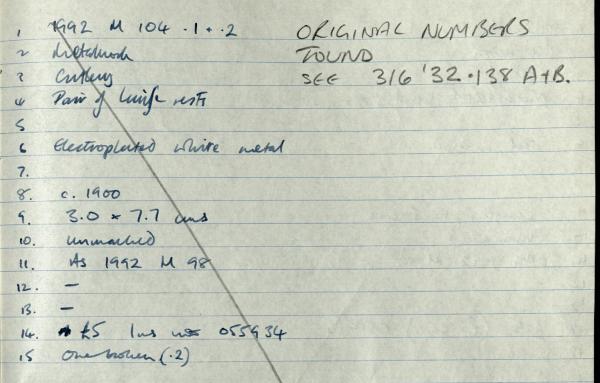 1 1992 M 104 .1 + .2 ORIGINAL NUMBERS
2 Metalwork FOUND
3 Cutlery SEE 316 '32.138 A+B.
4 Pair of knife rests
5
6 Electroplated white metal
7.
8. c. 1900
9. 3.0 x 7.7 cms
10. Unmarked
11. As 1992 M 98
12. —
13. —
14. £5 Ins no 055934
15 One broken (.2)